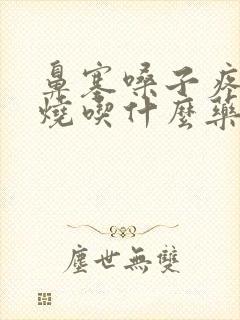 鼻塞嗓子疼
燒喫什麼藥
塵世無雙